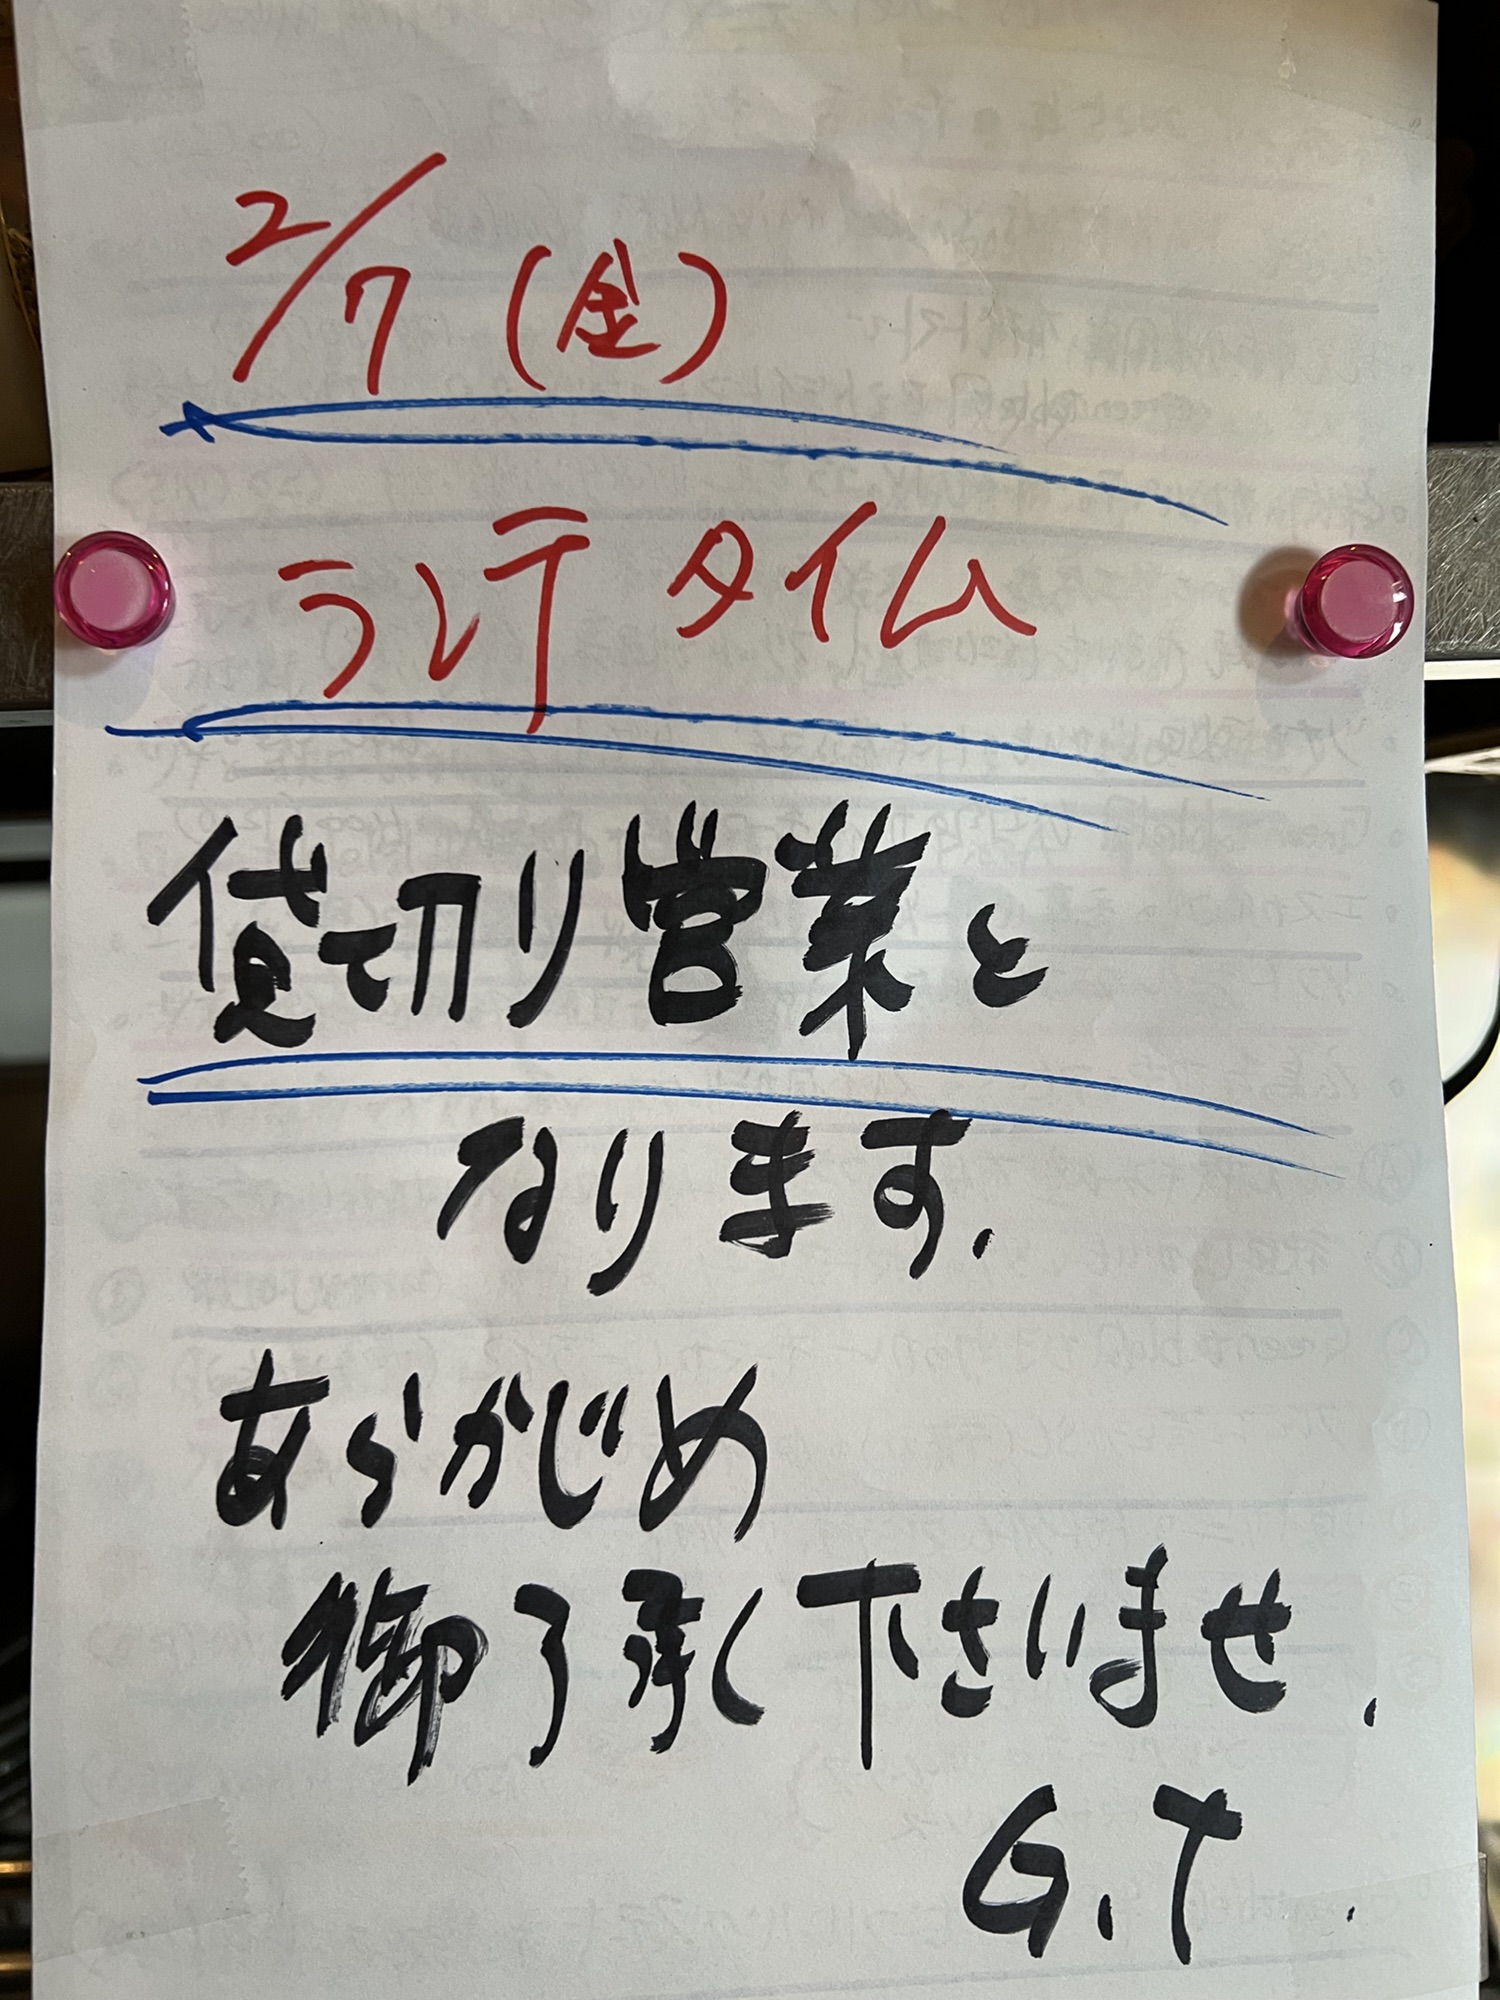 2/7(金)
ランチタイム
貸切り営業と
なります.
あらかじめ
御了承く下さいませ.
G.T.